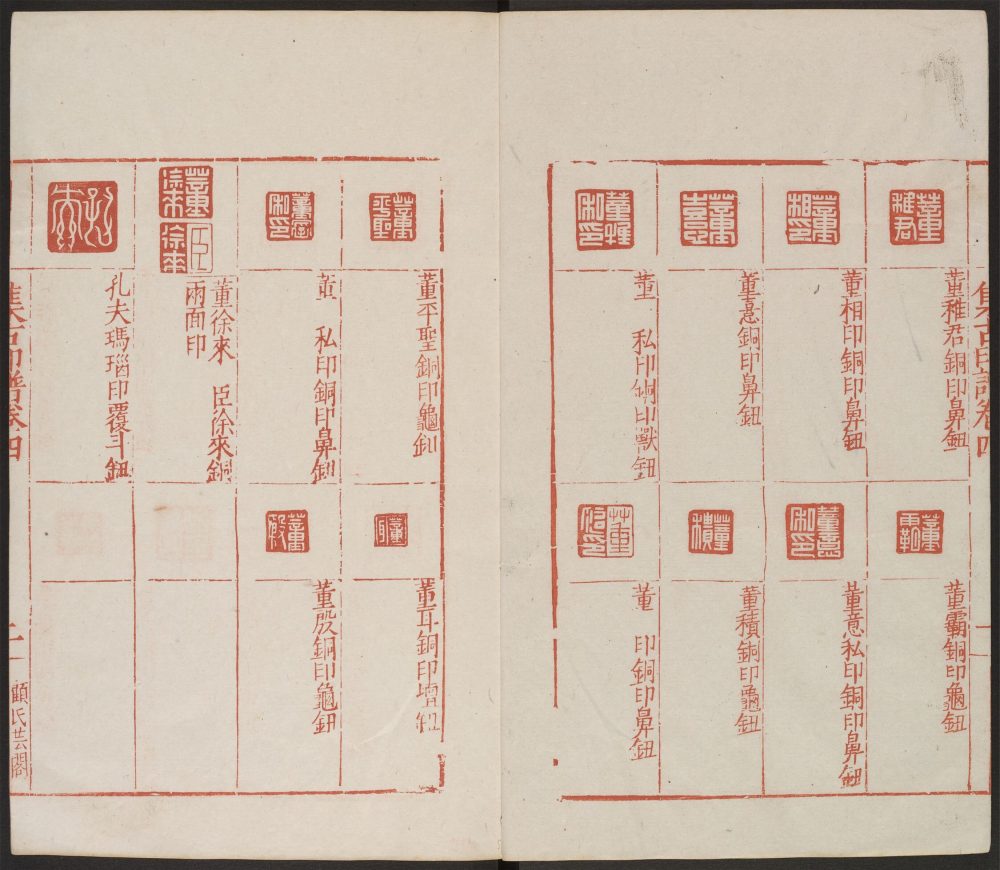 集古印譜卷四
董稚君銅印鼻鈕
董相印銅印鼻鈕
董憙銅印鼻鈕
董　私印銅印獸鈕
董霸銅印龜鈕
董意私印銅印鼻鈕
董積銅印龜鈕
董　印銅印鼻鈕
董平聖銅印龜鈕
董　私印銅印鼻鈕
董徐來　臣徐來銅
兩面印
孔夫瑪瑙印覆斗鈕
銅印壇鈕
董殷銅印龜鈕
集古印譜卷四
顧氏芸閣